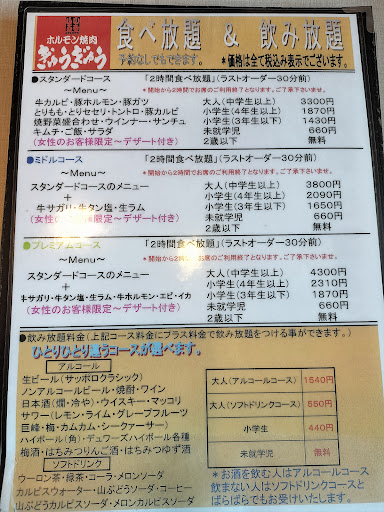 ホルモン焼肉
ぎゅうぎゅう
食べ放題 & 飲み放題
予約なしでもできます。
*価格は全て税込み表示でございます。
●スタンダードコース 「2時間食べ放題」(ラストオーダー30分前)
～Menu～
*開始から2時間でお席のご利用終了となります。ご了承下さいませ。
牛カルビ・豚ホルモン・豚ガツ
とりもも・とりセセリ・トントロ・豚カルビ
焼野菜盛合わせ・ウインナー・サンチュ
キムチ・ご飯・サラダ
(女性のお客様限定～デザート付き)
大人(中学生以上) 3300円
小学生(4年生以上) 1870円
小学生(3年生以下) 1430円
未就学児 660円
2歳以下 無料
●ミドルコース 「2時間食べ放題」(ラストオーダー30分前)
～Menu～
*開始から2時間でお席のご利用終了となります。ご了承下さいませ。
スタンダードコースのメニュー
+
牛サガリ・牛タン塩・生ラム
(女性のお客様限定～デザート付き)
大人(中学生以上) 3800円
小学生(4年生以上) 2090円
小学生(3年生以下) 1650円
未就学児 660円
2歳以下 無料
●プレミアムコース 「2時間食べ放題」(ラストオーダー30分前)
～Menu～
*開始から2時間でお席のご利用終了となります。ご了承下さいませ。
スタンダードコースのメニュー
+
牛サガリ・牛タン塩・生ラム・牛ホルモン・エビ・イカ
(女性のお客様限定～デザート付き)
大人(中学生以上) 4300円
小学生(4年生以上) 2310円
小学生(3年生以下) 1870円
未就学児 660円
2歳以下 無料
●飲み放題料金(上記コース料金にプラス料金で飲み放題をつける事ができます。)
ひとりひとり違うコースが選べます。
アルコール
生ビール(サッポロクラシック)
ノンアルコールビール・焼酎・ワイン
日本酒(燗・冷や)・ウイスキー・マッコリ
サワー(レモン・ライム・グレープフルーツ
巨峰・梅・カムカム・シークァーサー)
ハイボール(角)・デュワーズハイボール各種
梅酒・はちみつりんご酒・はちみつゆず酒
ソフトドリンク
ウーロン茶・緑茶・コーラ・メロンソーダ
カルピスウォーター・山ぶどうソーダ・コーヒー
山ぶどうカルピスソーダ・メロンカルピスソーダ
大人(アルコールコース) 1540円
大人(ソフトドリンクコース) 550円
小学生 440円
未就学児 無料
*お酒を飲む人はアルコールコース
飲まない人はソフトドリンクコースと
ばらばらでもお受けいたします。